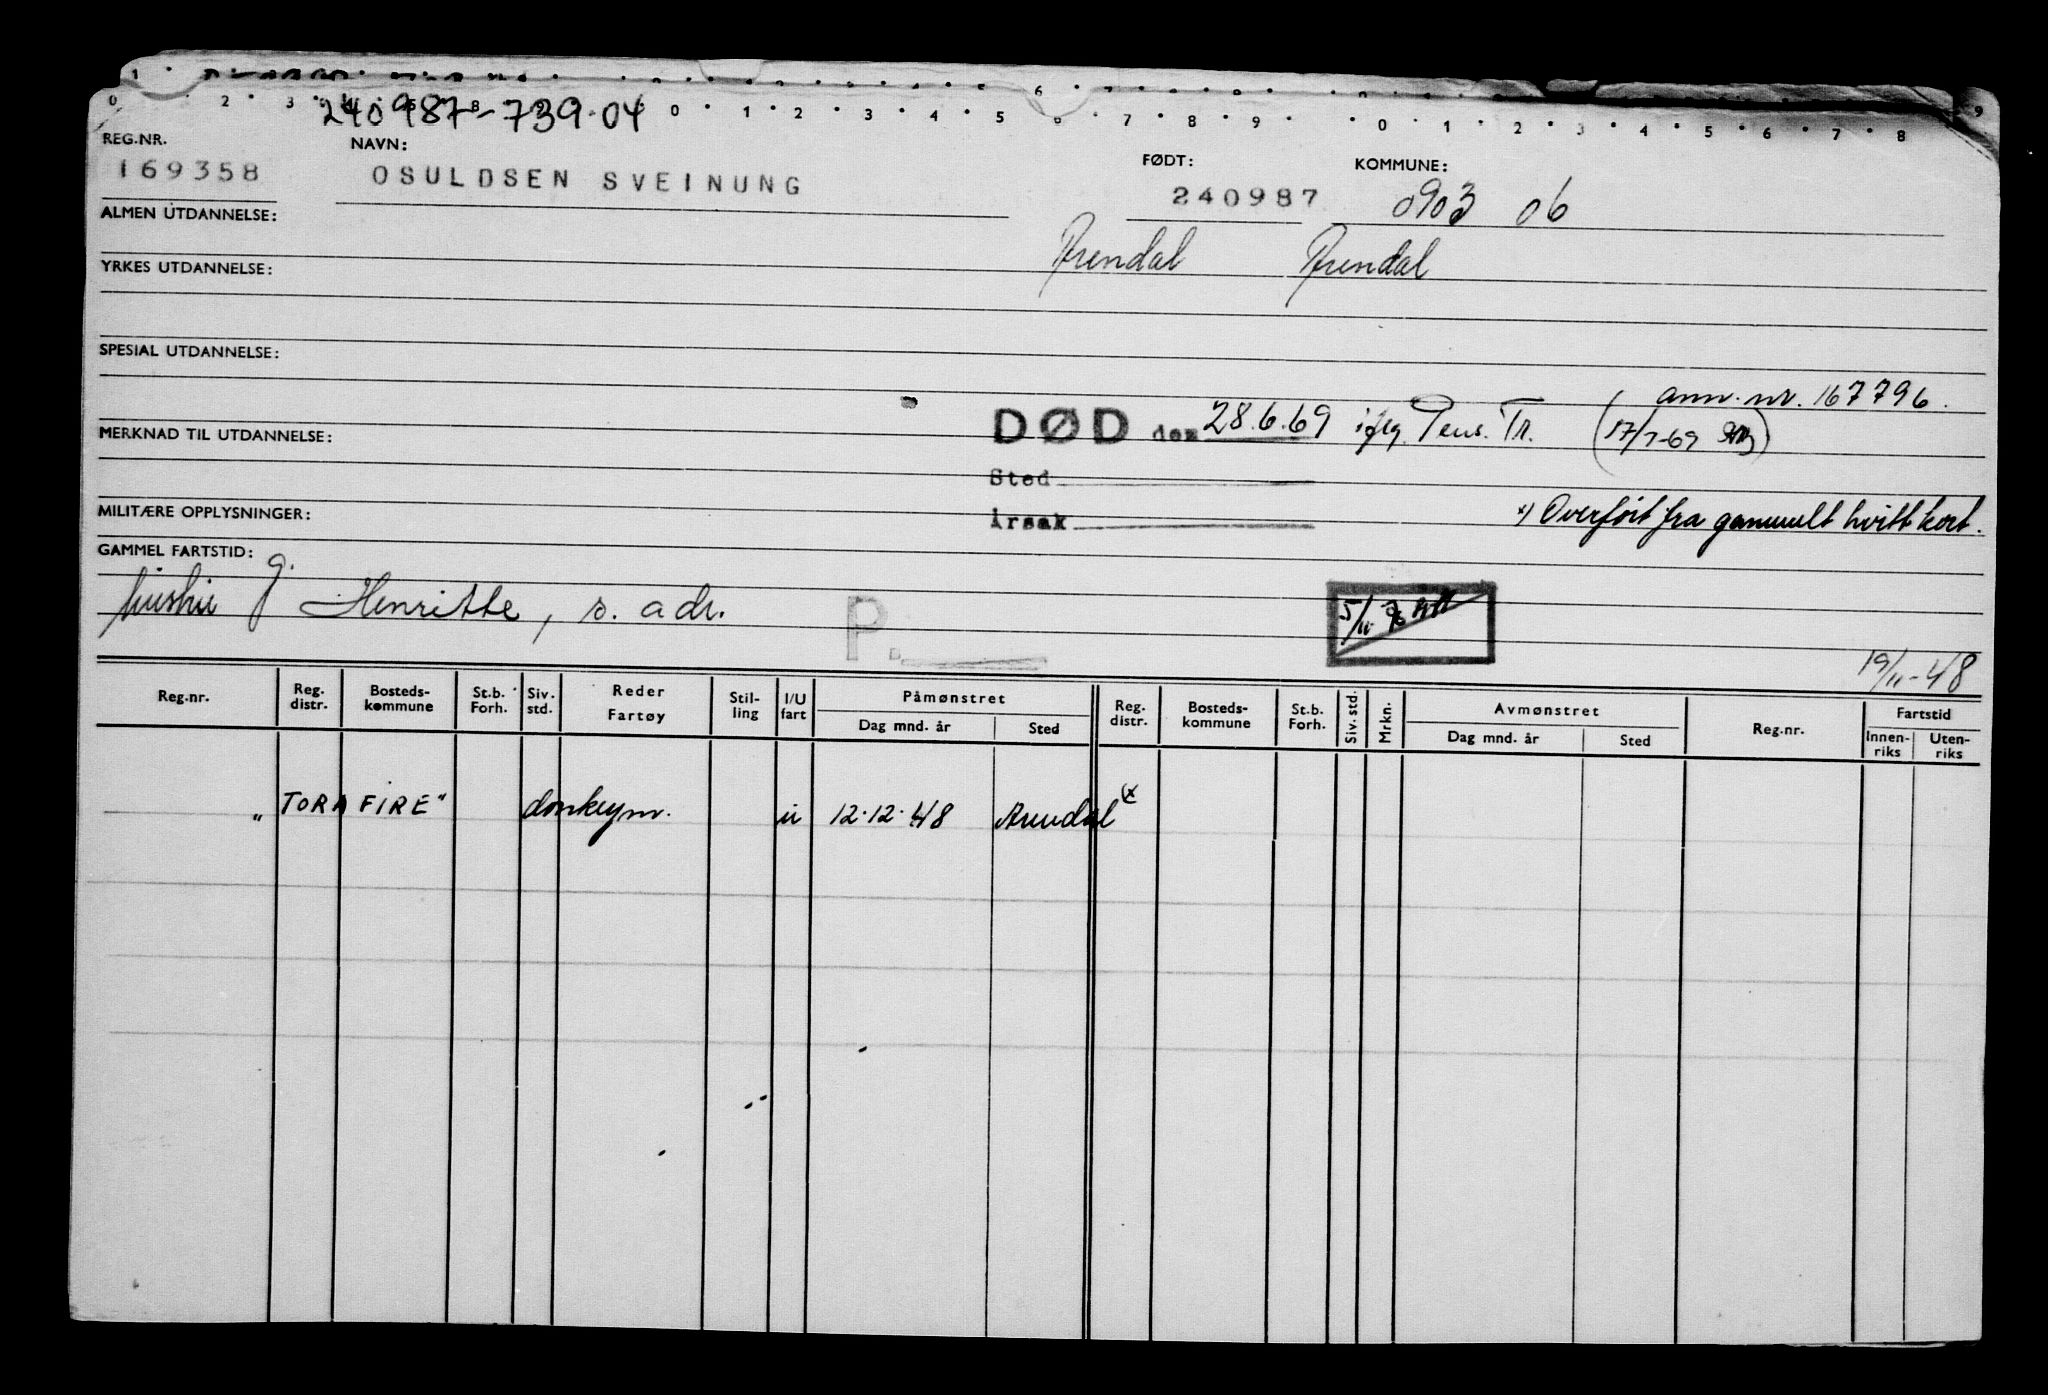 240987-739.04
REG.NR. NAVN: FØDT: KOMMUNE:
169358 OSULDSEN SVEINUNG 240987 0903 06
ALMEN UTDANNELSE:
Arendal Arendal
YRKES UTDANNELSE:
SPESIAL UTDANNELSE:
ann. nr. 167796.
DØD den 28.6.69 ifлg. Pens. Tr. (17/7-69
MERKNAD TIL UTDANNELSE:
Sted
MILITÆRE OPPLYSNINGER: Årsak x) Overført fra gammelt hvitt kort.
GAMMEL FARTSTID:
g. Henritte, s. adr. P. 5/11
19/11-48
Reg.nr. Reg. distr. Bosteds-kommune St.b. Forh. Siv. std. Reder Fartøy Stil-ling I/U fart Påmønstret Dag mnd. år Sted Reg. distr. Bosteds-kommune St.b. Forh. Siv. std. Mrkn. Avmønstret Dag mnd. år Sted Reg.nr. Fartstid Innen-riks Uten-riks
"TORAFIRE" donkeym. u 12.12.48 Arendal x)